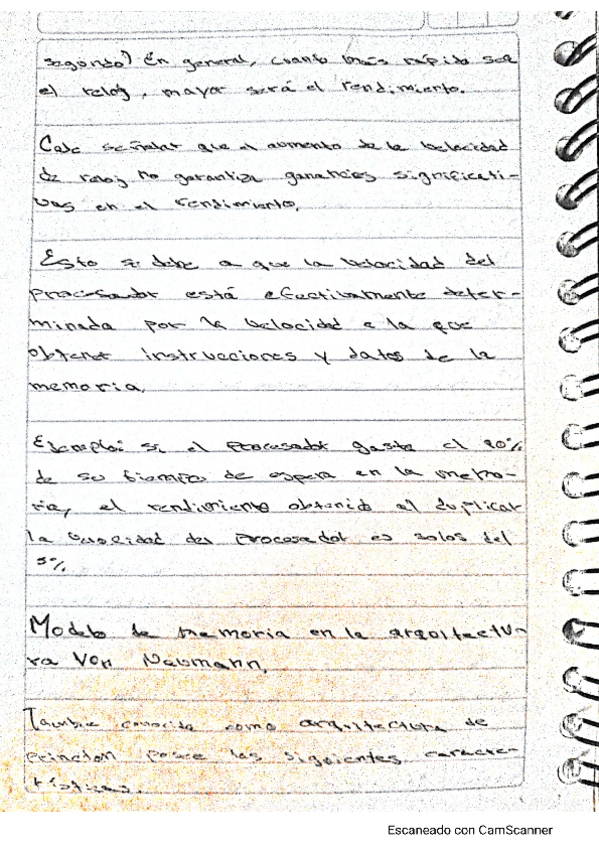 segundo) En general, cuanto más rápido sea
el reloj, mayor será el rendimiento.
Cabe señalar que el aumento de la velocidad
de reloj no garantiza ganancias significati-
vas en el rendimiento.
Esto se debe a que la velocidad del
procesador está efectivamente deter-
minada por la velocidad a la que
obtener instrucciones y datos de la
memoria.
Ejemplo: si el procesador gasta el 90%
de su tiempo de espera en la memo-
ria, el rendimiento obtenido al duplicar
la velocidad del procesador es solos del
5%
Modelo de memoria en la arquitectu-
ra Von Neumann.
Tambie conocida como arquitectura de
princton posee las siguientes caracte-
rísticas.
Escaneado con CamScanner